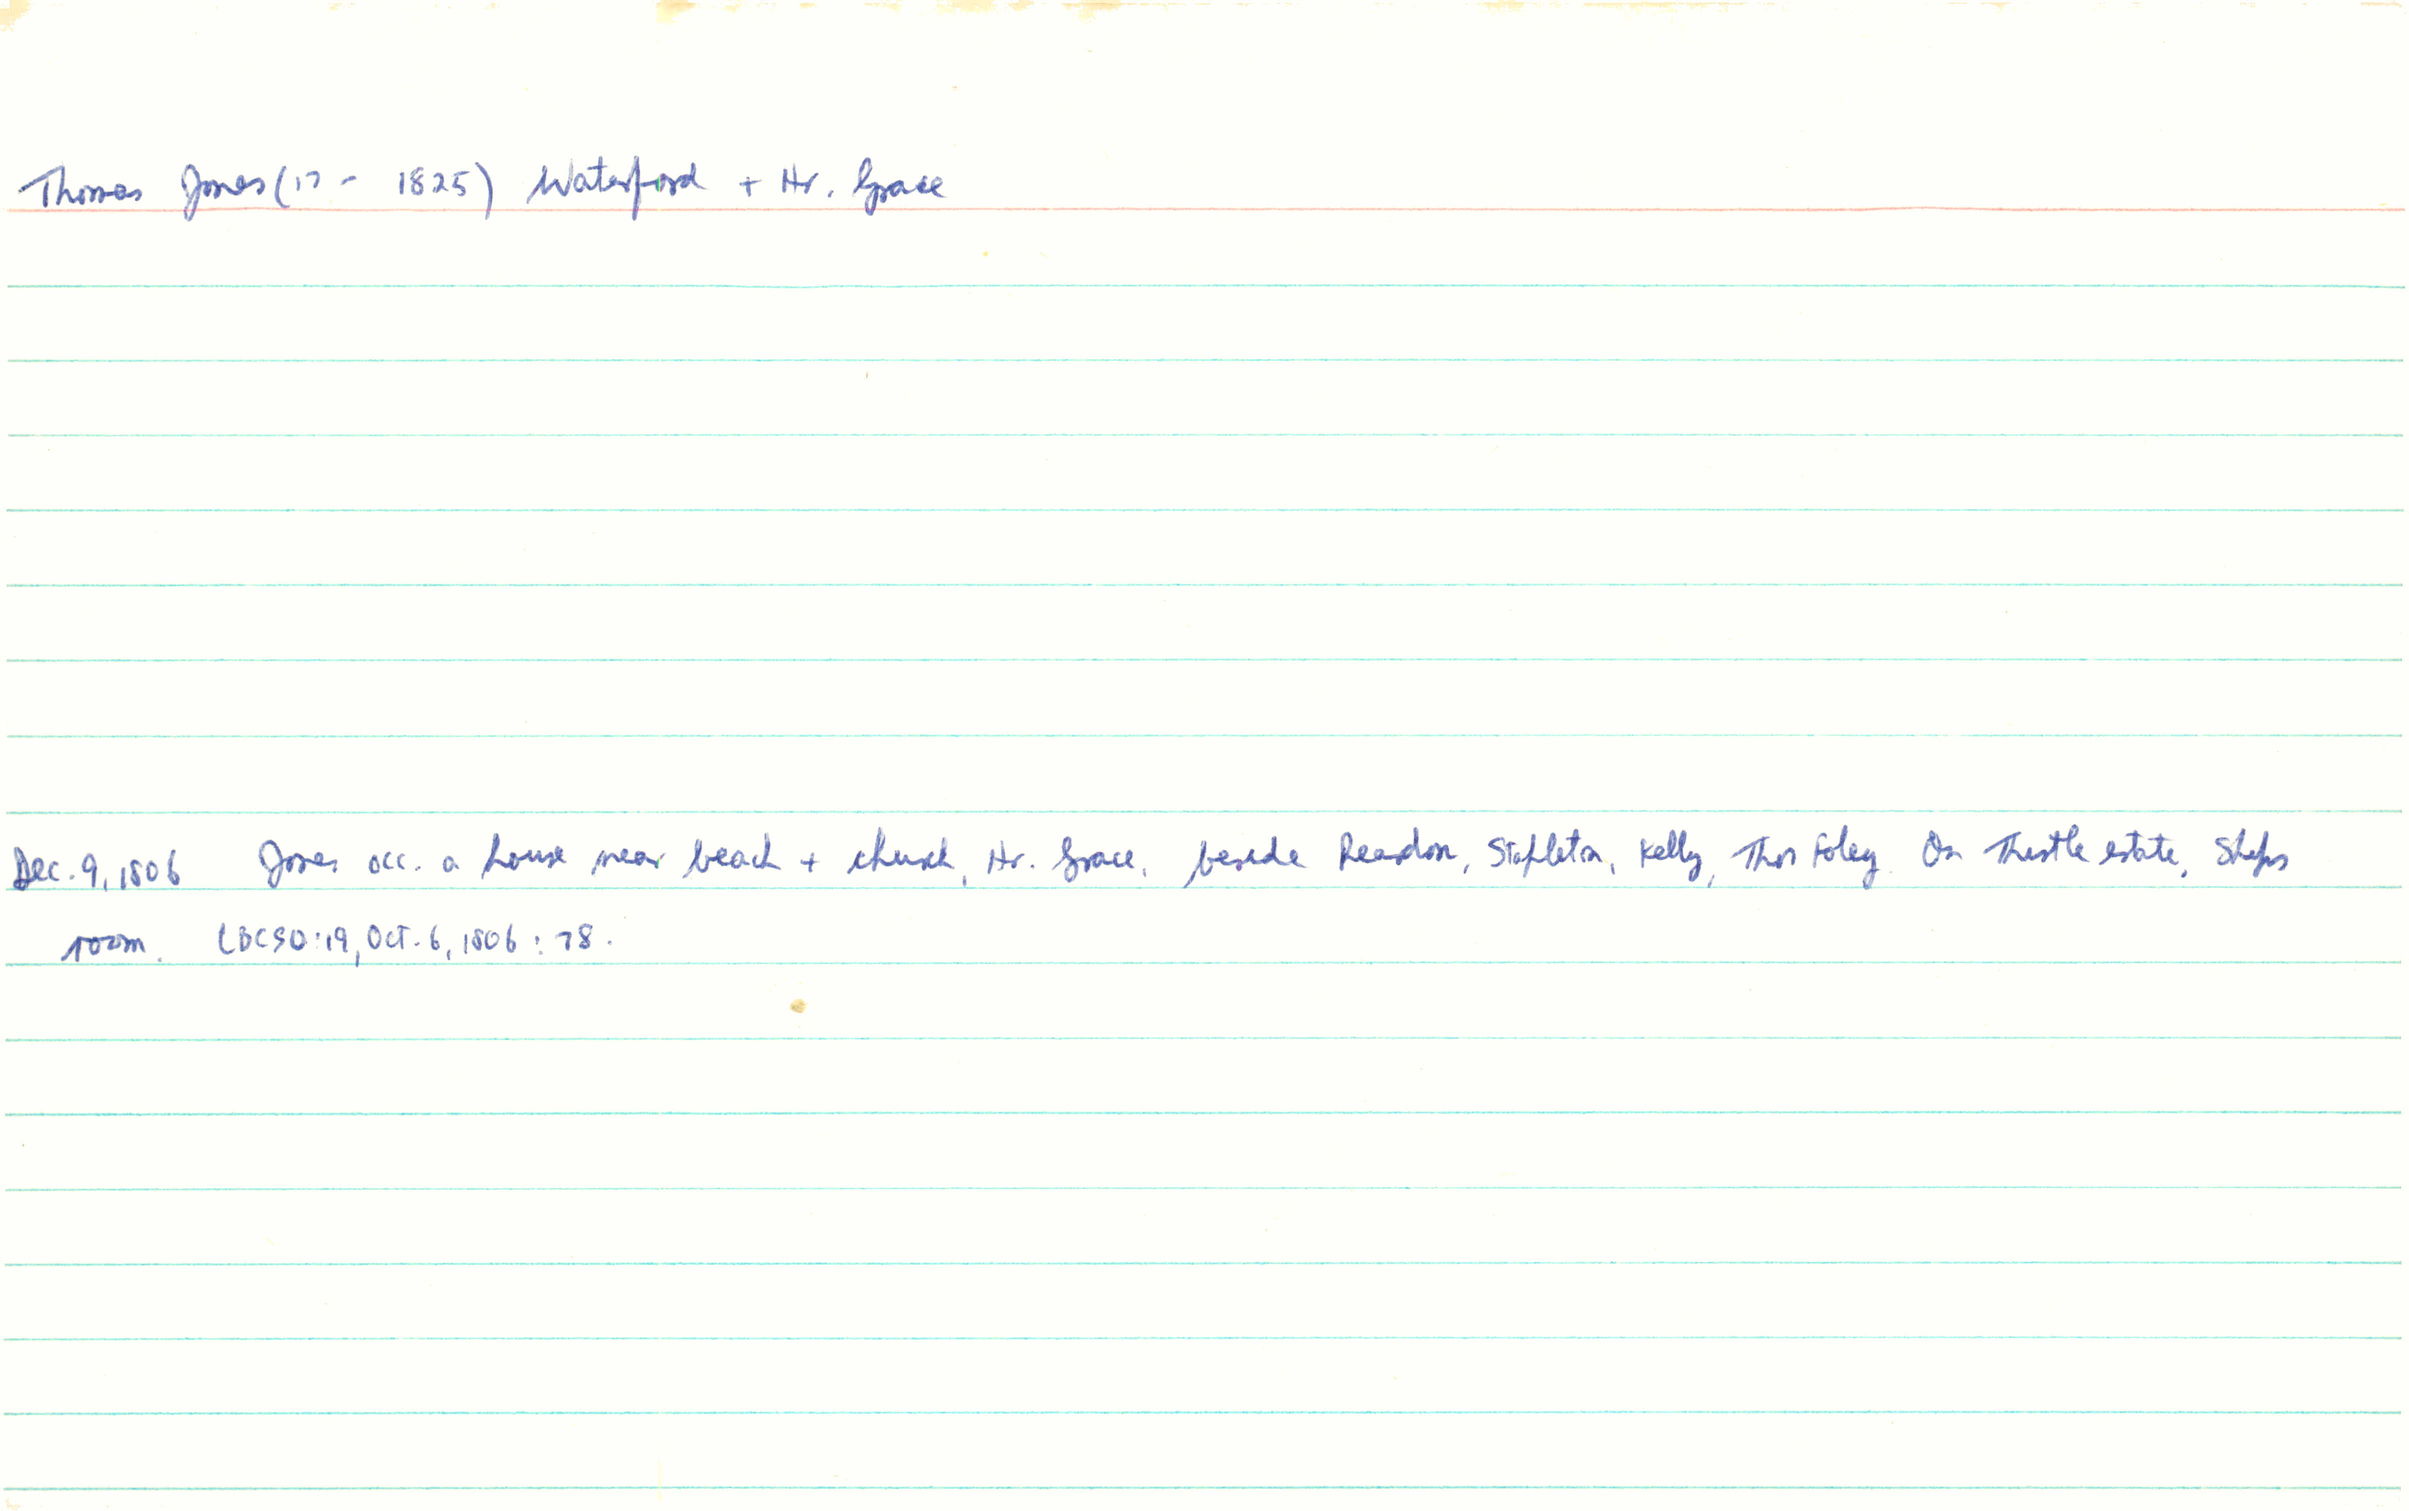 Thomas Jones (17 - 1825) Waterford + Hr. Grace
Dec. 9, 1806 Jones occ. a house near beach + church, Hr. Grace, beside Reardon, Stapleton, Kelly, Thos Foley. On Thistle estate, Ships
room. CBCSO:19, Oct. 6, 1806: 78.